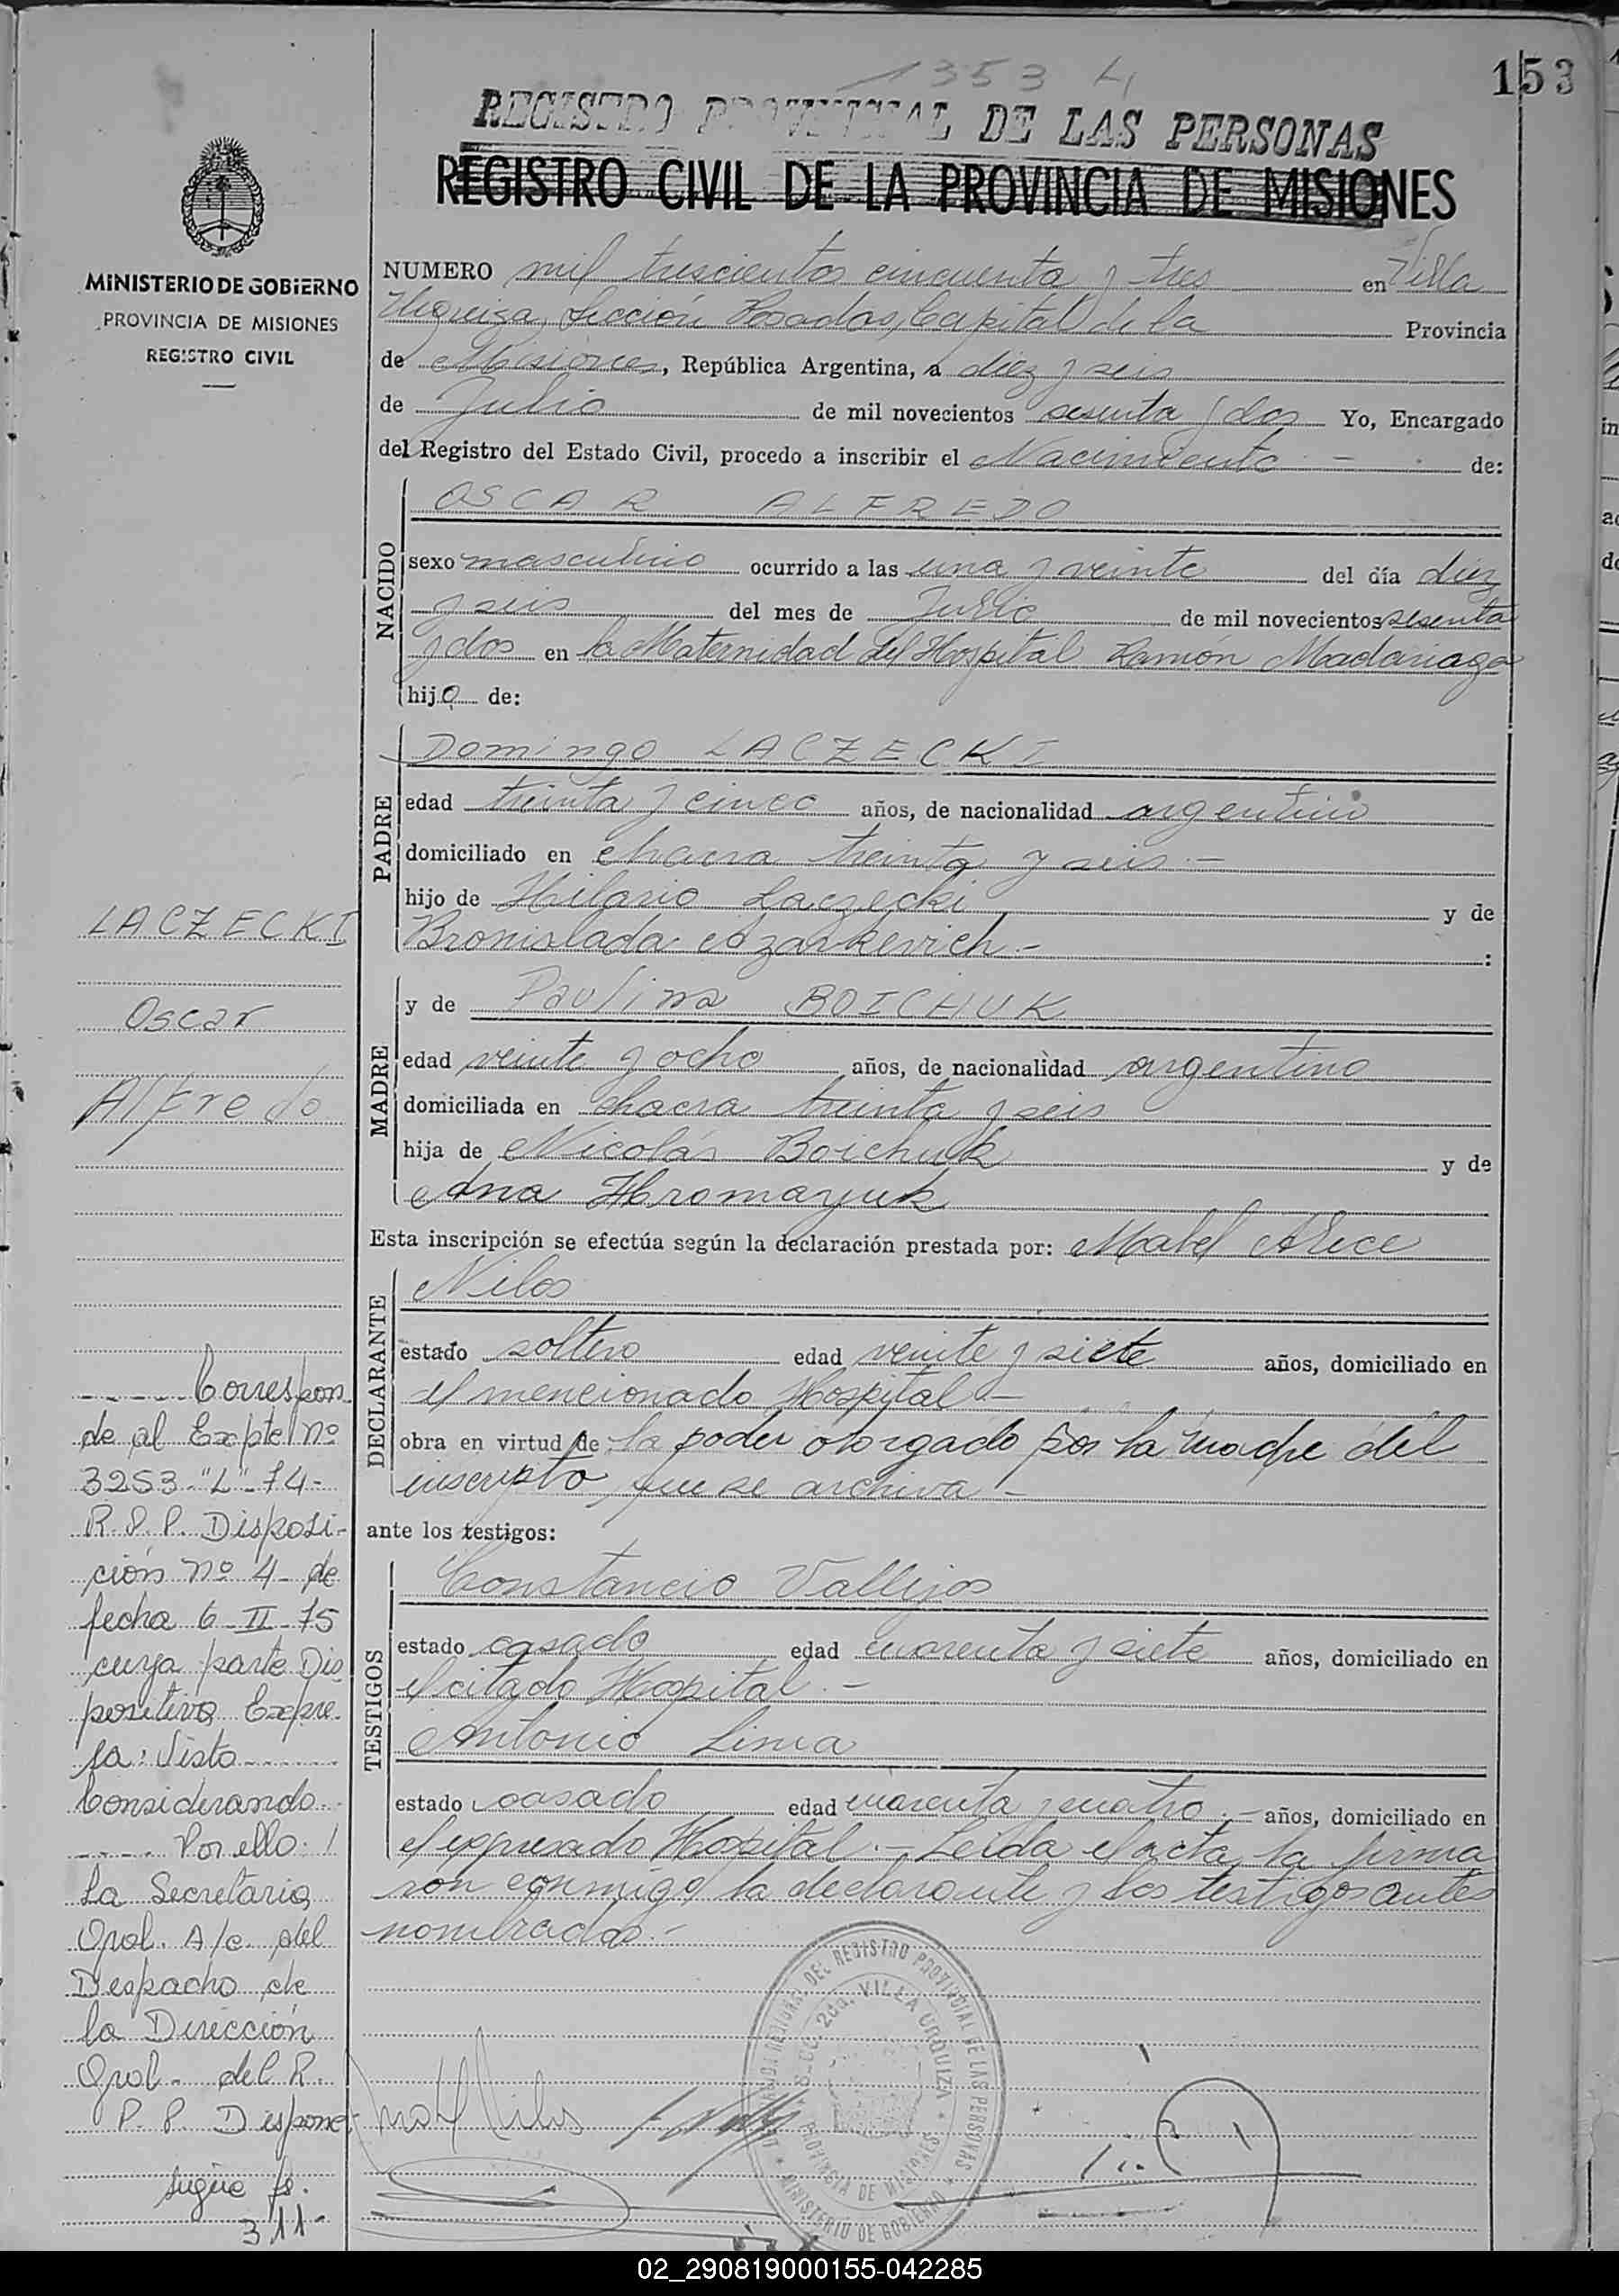 1353 L
153
REGISTRO PROVINCIAL DE LAS PERSONAS
REGISTRO CIVIL DE LA PROVINCIA DE MISIONES
MINISTERIO DE GOBIERNO
PROVINCIA DE MISIONES
REGISTRO CIVIL
NUMERO mil trescientos cincuenta y tres en Villa
Urquiza, Sección Posadas, Capital de la Provincia
de Misiones, República Argentina, a diez y seis
de Julio de mil novecientos sesenta y dos Yo, Encargado
del Registro del Estado Civil, procedo a inscribir el Nacimiento de:
NACIDO
OSCAR ALFREDO
sexo masculino ocurrido a las una y veinte del día diez
y seis del mes de Julio de mil novecientos sesenta
y dos en la Maternidad del Hospital Ramón Madariaga
hijo de:
PADRE
Domingo LACZECKI
edad treinta y cinco años, de nacionalidad argentino
domiciliado en chacra treinta y seis.-
hijo de Hilario Laczecki y de
Bronislada Cozarkevich.- :
MADRE
y de Paulina BOICHUK
edad veinte y ocho años, de nacionalidad argentina
domiciliada en chacra treinta y seis
hija de Nicolás Boichuk y de
Ana Hromayuk
Esta inscripción se efectúa según la declaración prestada por: Mabel Alice
DECLARANTE
Nilos
estado soltera edad veinte y siete años, domiciliado en
el mencionado Hospital.-
obra en virtud de la poder otorgado por la madre del
inscripto, que se archiva.-
ante los testigos:
TESTIGOS
Constancio Vallejos
estado casado edad cuarenta y siete años, domiciliado en
el citado Hospital.-
Antonio Lima
estado casado edad cuarenta y cuatro.- años, domiciliado en
el expresado Hospital.- Leída el acta, la firma
ron conmigo la declarante y los testigos antes
nombrados.-
LACZECKI
Oscar
Alfredo
Correspon
de al Expte Nº
3253-"L"-74-
R.P.P. Disposi-
ción nº 4- de
fecha 6-II-75
cuya parte Dis
positiva Expre-
sa: Visto
Considerando
Por ello: !
La Secretaria
Gral. A/c. del
Despacho de
la Dirección
Gral. del R.
P.P. Dispone:
Sigue fs.
311-
DEL REGISTRO PROVINCIAL DE LAS PERSONAS
SECC. 2da. VILLA URQUIZA
PROVINCIA DE MISIONES
MINISTERIO DE GOBIERNO
02_290819000155-042285